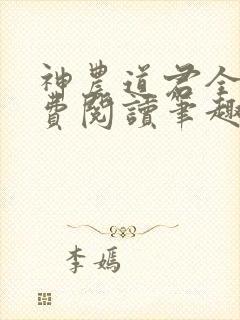 神農道君全
費閱讀筆趣
李嫣